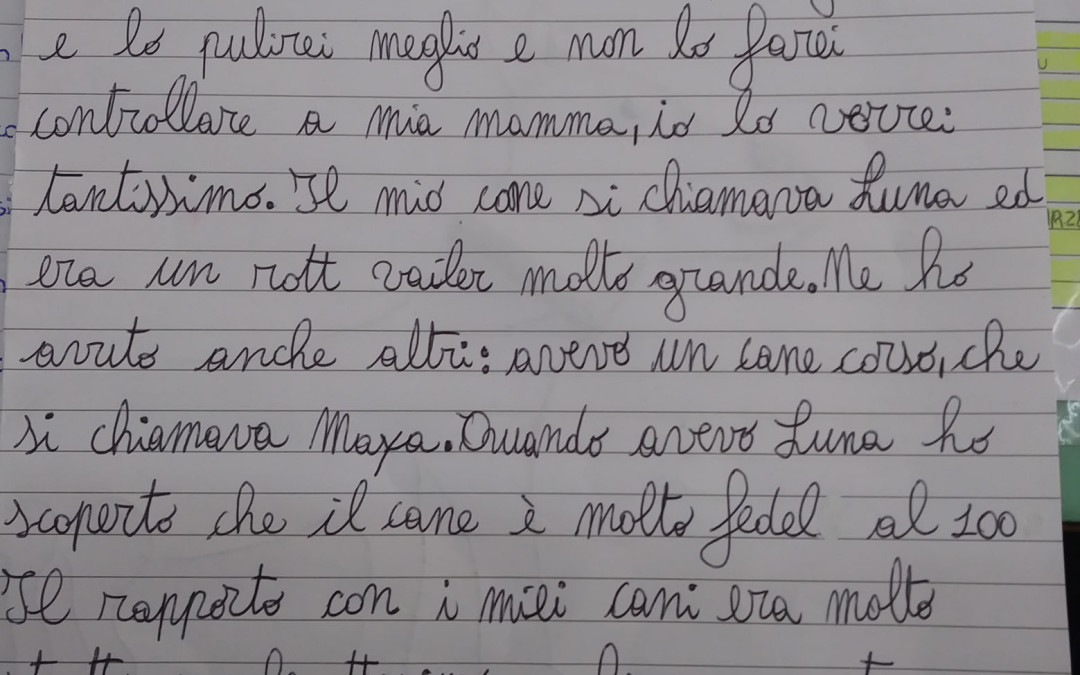 e lo pulirei meglio e non lo farei
controllare a mia mamma, io lo verrei
tantissimo. Il mio cane si chiamava Luna ed
era un rott vailer molto grande. Ne ho
avuto anche altri: avevo un cane corso, che
si chiamava Maya. Quando avevo Luna ho
scoperto che il cane è molto fedel al 100
Il rapporto con i miei cani era molto